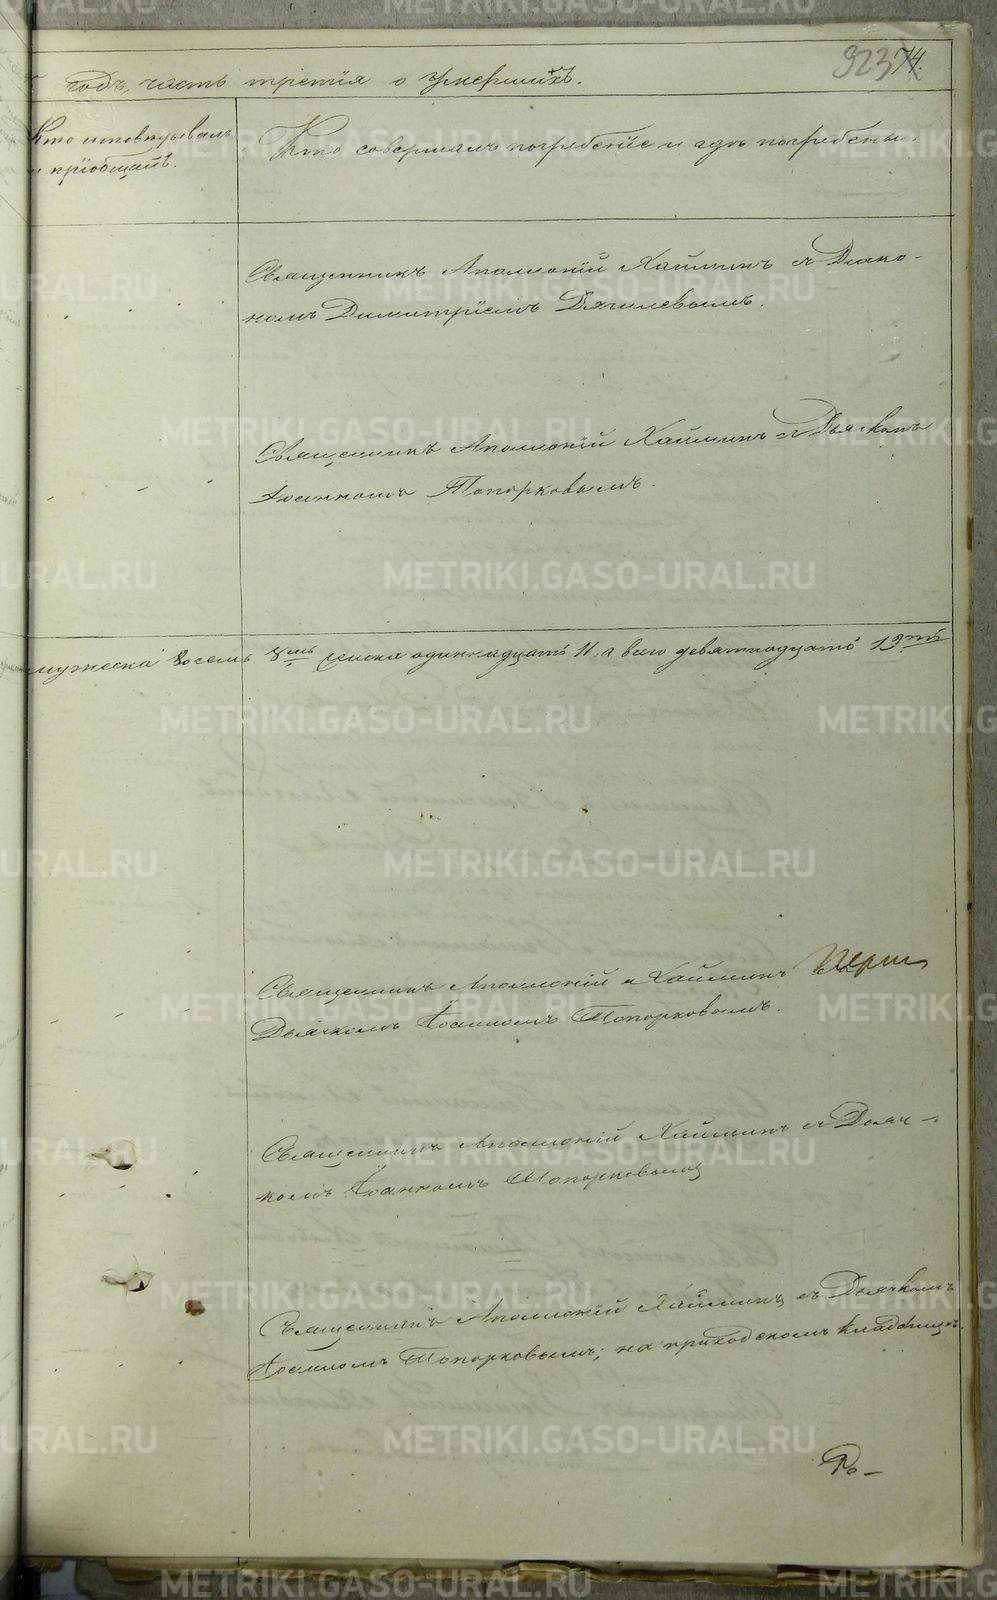 923 74.
годъ, часть третія о умершихъ.
Кто исповѣдывалъ
и пріобщалъ.
Кто совершалъ погребеніе и гдѣ погребены.
Священникъ Аполлоній Хайминъ съ Діако-
номъ Димитріемъ Дягилевымъ.
Священникъ Аполлоній Хайминъ съ Дьячкомъ
Іоанномъ Топорковымъ.
мужеска восемь 8мь женска одиннадцать 11, а всего девятнадцать 19ть
Священникъ Аполлоній Хайминъ
Дьячкомъ Іоанномъ Топорковымъ.
Священникъ Аполлоній Хайминъ съ Дьяч-
комъ Іоанномъ Топорковымъ
Священникъ Аполлоній Хайминъ съ Дьячкомъ
Іоанномъ Топорковымъ; на приходскомъ кладбищѣ.
METRIKI.GASO-URAL.RU